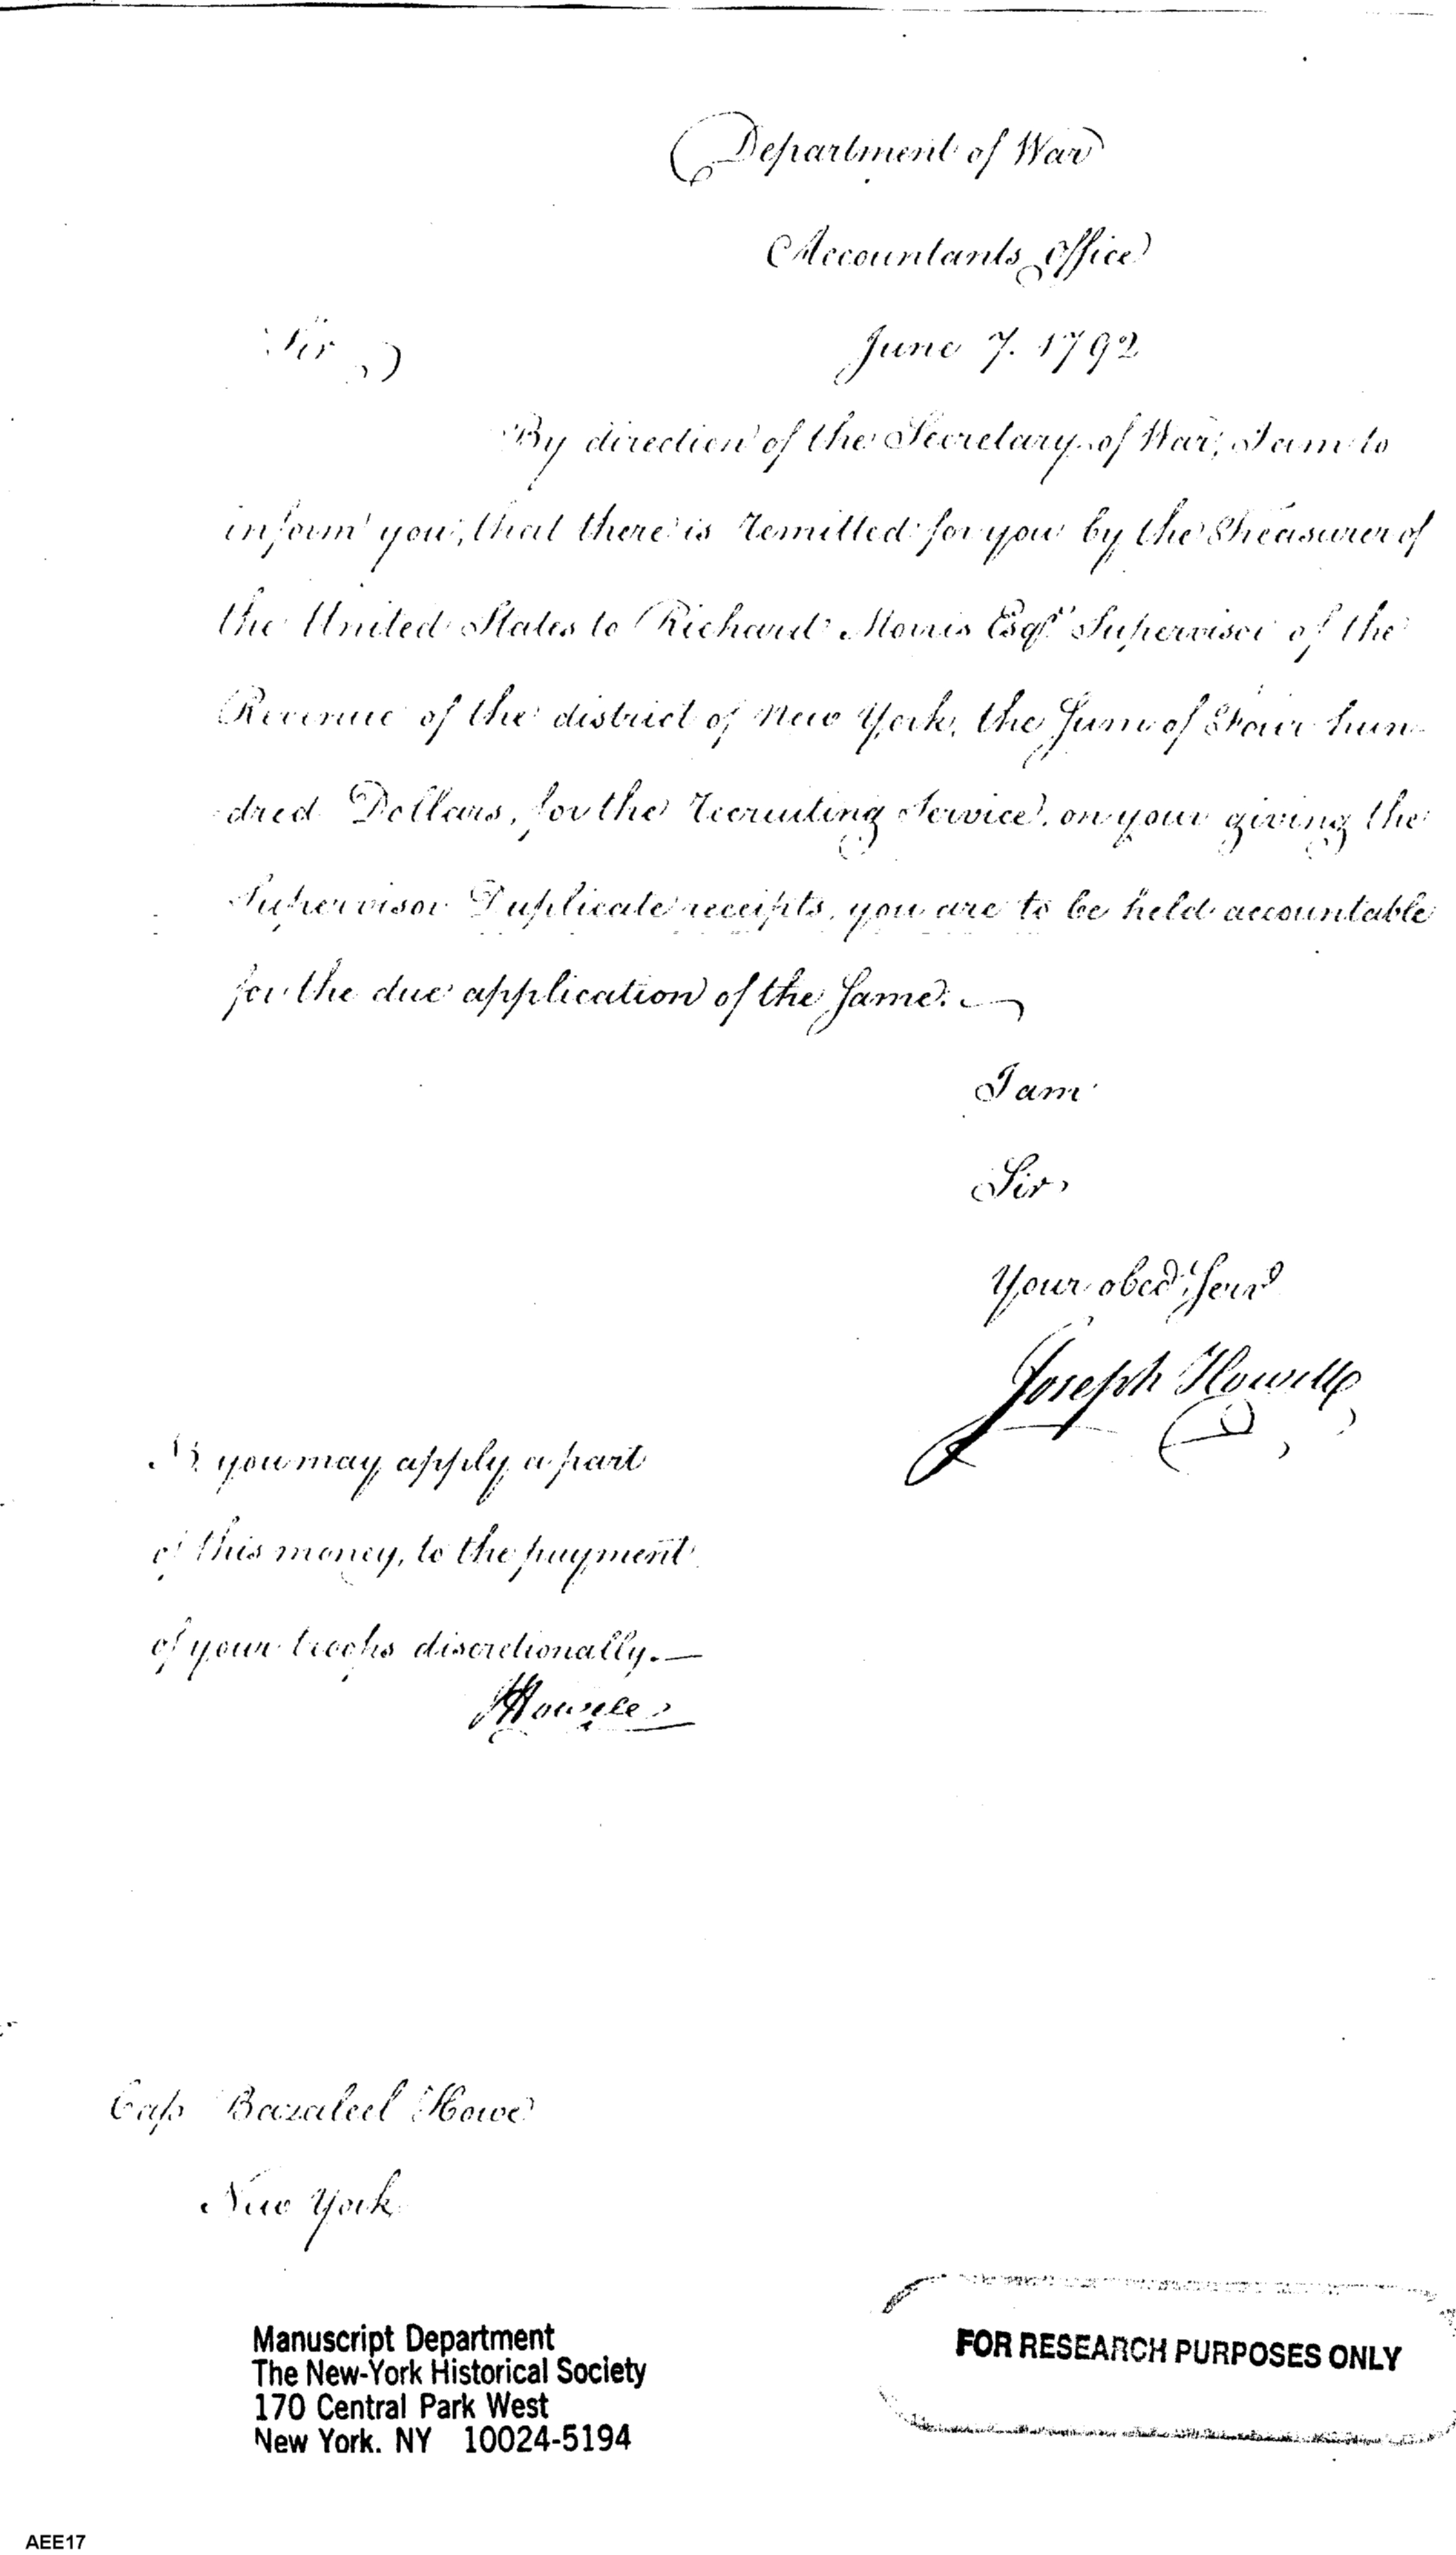 Department of War
Accountants Office
Sir, June 7. 1792
By direction of the Secretary of War, I am to
inform you, that there is remitted for you by the Treasurer of
the United States to Richard Morris Esqr Supervisor of the
Revenue of the district of New York, the Sum of Four hun-
-dred Dollars, for the recruiting Service, on your giving the
Supervisor Duplicate receipts, you are to be held accountable
for the due application of the Same.
I am
Sir,
Your obed Serv
Joseph Howell
you may apply a part
of this money, to the payment
of your troops discretionally.—
JHowell
Cap Bazaleel Howe
New York
Manuscript Department
The New-York Historical Society
170 Central Park West
New York. NY 10024-5194
FOR RESEARCH PURPOSES ONLY
AEE17